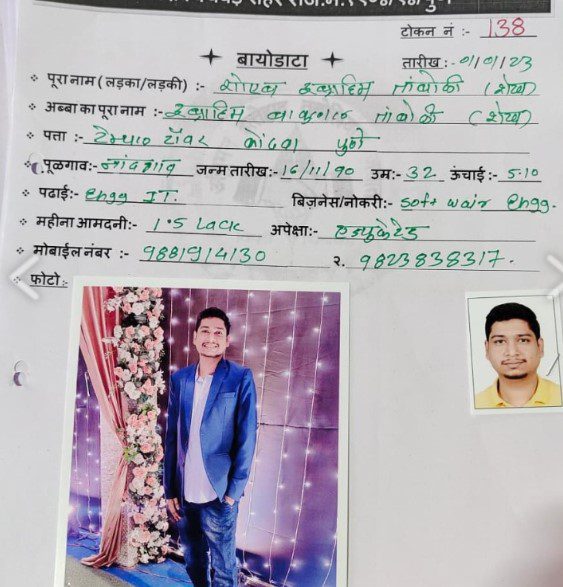 टोकन नं :- 138
बायोडाटा तारीख :- 01/01/23
पूरा नाम (लड़का/लड़की) :- शोएब इब्राहिम तांबोळी (शेख)
अब्बा का पूरा नाम :- इब्राहिम तांबोळी (शेख)
पत्ता :- टॉवर कोंढवा पुणे
पूळगाव:- जन्म तारीख:- 16/11/90 उम्र:- 32 ऊंचाई:- 5.10
पढाई:- Engg IT. बिज़नेस/नोकरी:- Soft wair Engg.
महीना आमदनी:- 1.5 Lack अपेक्षा:- एज्युकेटेड
मोबाईल नंबर :- 9881914130 २. 9823838317.
फोटो:-